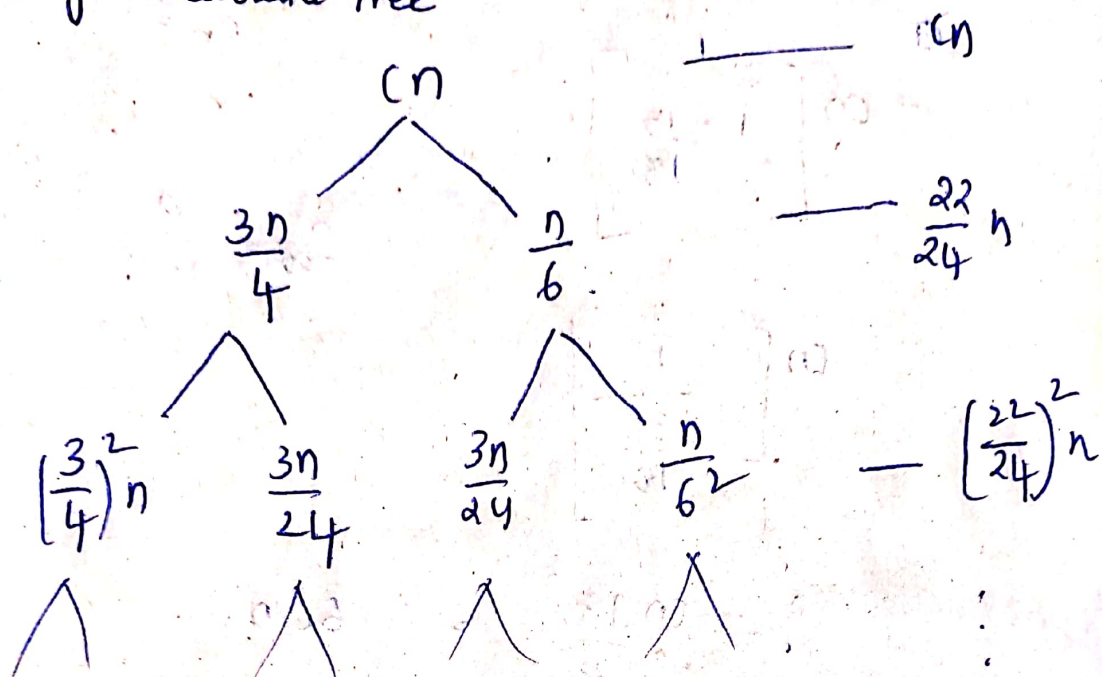 Tree
cn cn
3n/4 n/6 22/24 n
(3/4)^2 n 3n/24 3n/24 n/6^2 (22/24)^2 n